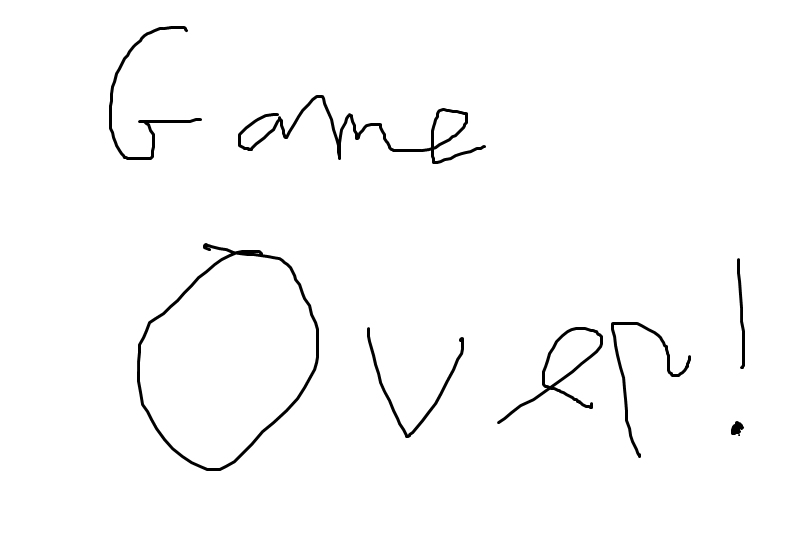 Game
Over!